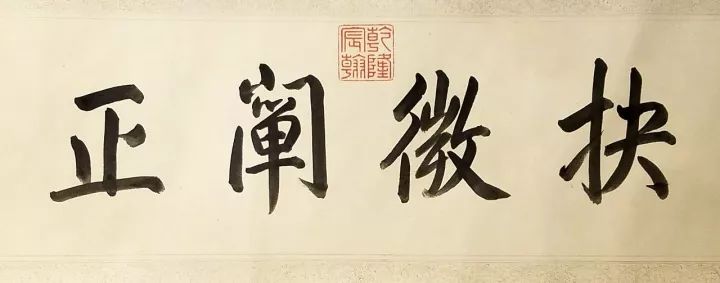 抉微闡正
乾隆
宸翰